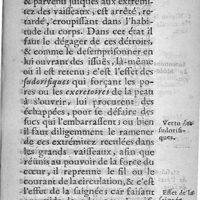 & parvenu jusques aux extremi-
tez des vaisseaux, est arrêté, re-
tardé, croupissant dans l'habi-
tude du corps. Dans cet état il
faut le dégager de ces détroits,
& comme le desemprisonner en
lui ouvrant des issuës, là-même
où il est retenu ; c'est l'effet des
sudorifiques qui forçant les po-
res ou les excretoires de la peau
à s'ouvrir, lui procurent des
échappées, pour se défaire des
sucs qui l'embarrassent ; ou bien
il faut diligemment le ramener
de ces extrémitez reculées dans
les grands vaisseaux, afin que
réünis au pouvoir de la force du
cœur, il reprenne le fil ou le
courant de la circulation, & c'est
l'effet de la saignée : car faisant
Vertu des
sudorifi-
ques.
Effet de la
saignée